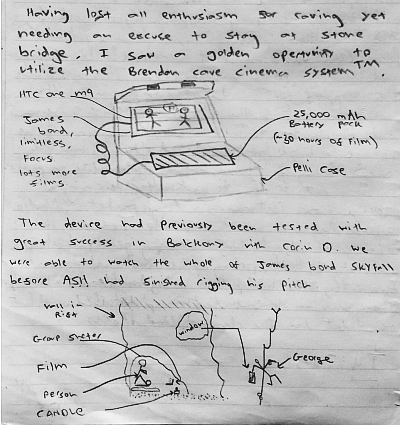 Having lost all enthusiasm for caving yet
needing an excuse to stay at stone
bridge, I saw a golden opertunity to
utilize the Brendon cave cinema system™.
HTC one m9
James
bond,
limitless,
Focus
lots more
films
25,000 mAh
Battery pack
(~30 hours of film)
Pelli case
The device had previously been tested with
great success in Balchony with Corin O. We
were able to watch the whole of James bond Skyfall
before ASH had finished rigging his pitch
wall in
Rift
Group shelter
Film
Person
CANDLE
window
George